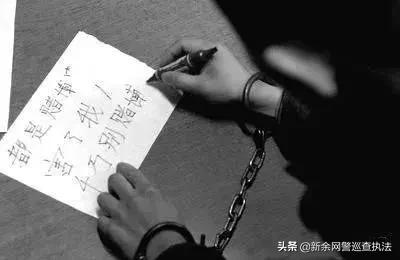 都是赌博
害了我！
千万别赌博
头条 @新余网警巡查执法